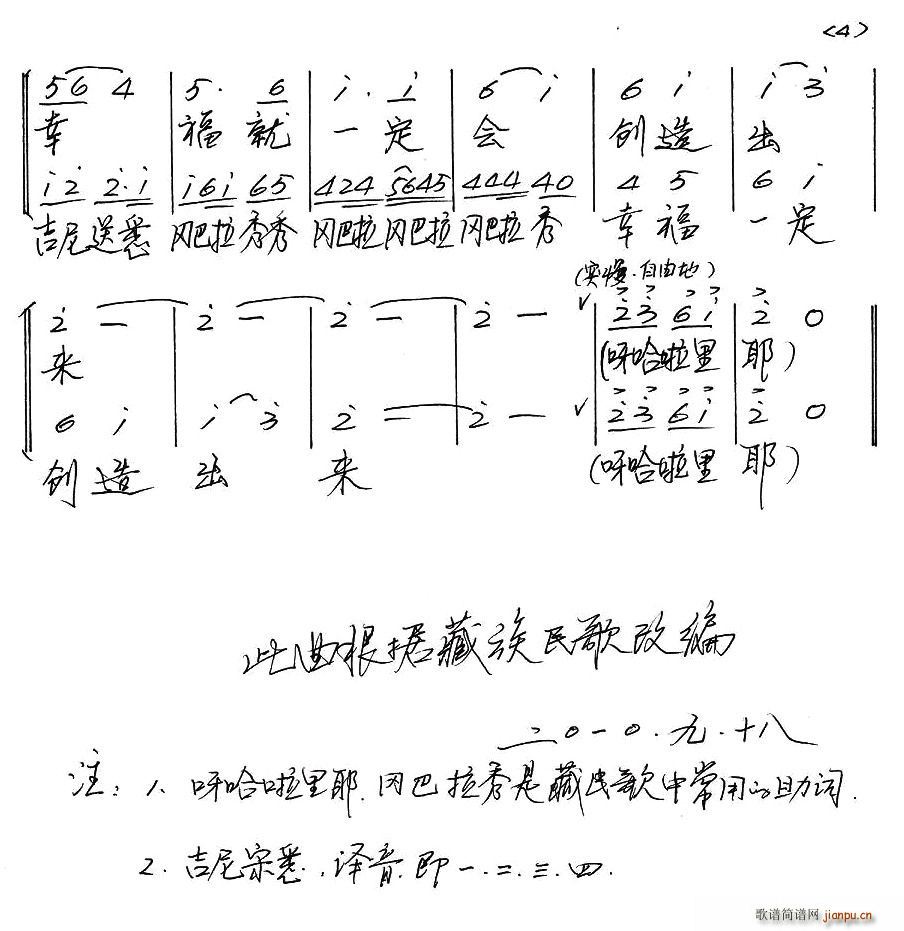 <4>
5 6 4 | 5 · 6 | i · i | 6 i | 6 i | i 3
幸 福 就 一 定 会 创 造 出
i 2 2 · i | i 6 i 6 5 | 4 2 4 5 6 4 5 | 4 4 4 4 0 | 4 5 | 6 i
吉尼送悉 冈巴拉秀秀 冈巴拉冈巴拉 冈巴拉秀 幸福 一定
(突慢.自由地)
2 — | 2 — | 2 — | 2 — ∨ | 2 3 6 i | 2 0
来 (呀哈啦里 耶)
6 i | i 3 | 2 — | 2 — ∨ | 2 3 6 i | 2 0
创造 出 来 (呀哈啦里 耶)
此曲根据藏族民歌改编
二〇一〇.九.十八
注: 1、呀哈啦里耶.冈巴拉秀是藏民歌中常用的助词.
2.吉尼宗悉.译音.即一.二.三.四.
歌谱简谱网 jianpu.cn